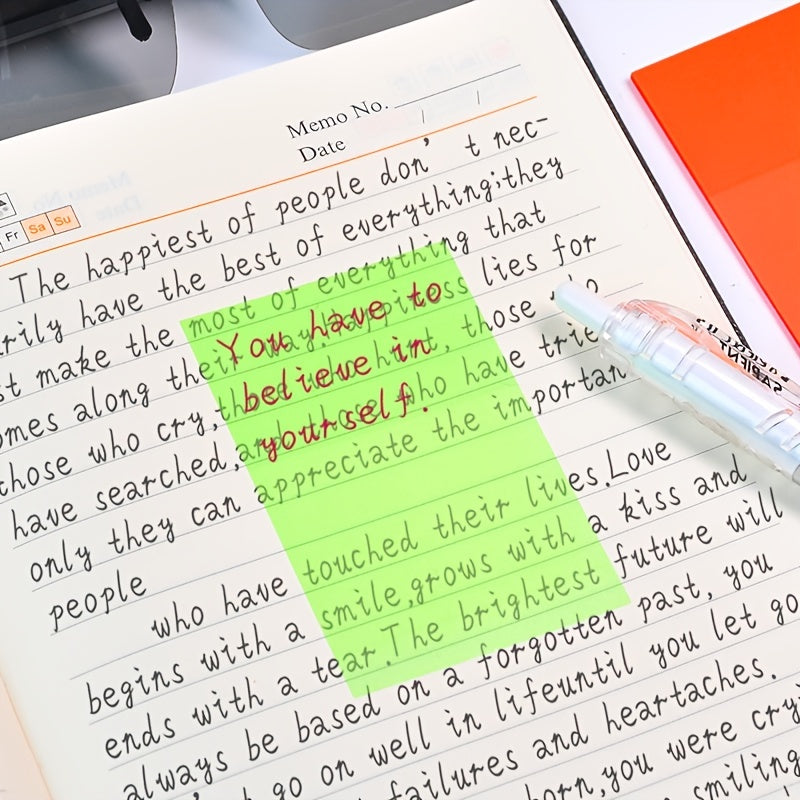 Memo No.
Date
Fr Sa Su
The happiest of people don't nec-
rily have the best of everything;they
st make the most of everything that
omes along their way.Happiness lies for
those who cry,those who hurt, those who
have searched,and those who have tried
only they can appreciate the importan
people
who have touched their lives.Love
begins with a smile,grows with a kiss and
ends with a tear.The brightest future will
always be based on a forgotten past, you
go on well in lifeuntil you let go
failures and heartaches.
born,you were cryi
smiling
You have to
believe in
yourself.
SAPIENTS